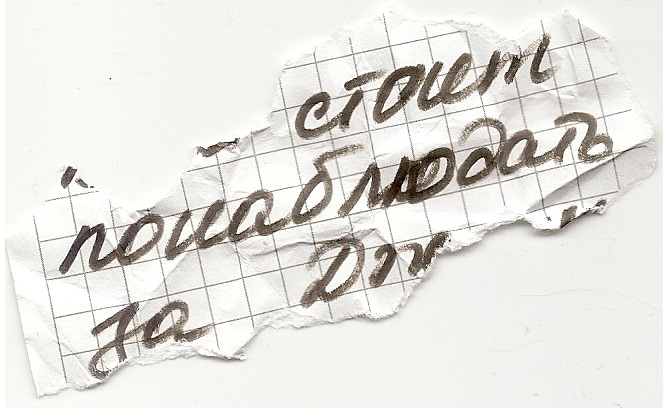 стоит
понаблюдать
за